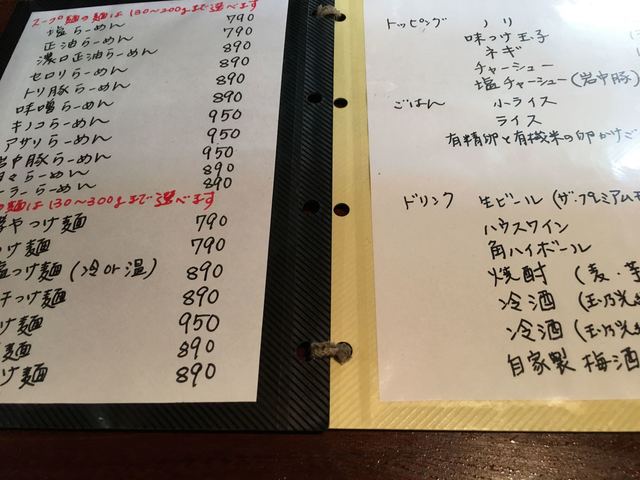 スープ麺の麺は130〜200gまで選べます
塩らーめん 790
正油らーめん 790
濃口正油らーめん 890
セロリらーめん 890
トリ豚らーめん 890
味噌らーめん 890
キノコらーめん 950
アサリらーめん 950
岩中豚らーめん 950
らーめん 890
ーラーらーめん 890
の麺は130〜300gまで選べます
やつけ麺 790
つけ麺 790
塩つけ麺(冷or温) 890
つけ麺 890
つけ麺 950
麺 890
つけ麺 890
トッピング ノリ
味つけ玉子
ネギ
チャーシュー
塩チャーシュー(岩中豚)
ごはん 小ライス
ライス
有精卵と有機米の卵かけご
ドリンク 生ビール(ザ・プレミアムモ
ハウスワイン
角ハイボール
焼酎 (麦・芋
冷酒(玉乃光
冷酒(玉乃光
自家製 梅酒